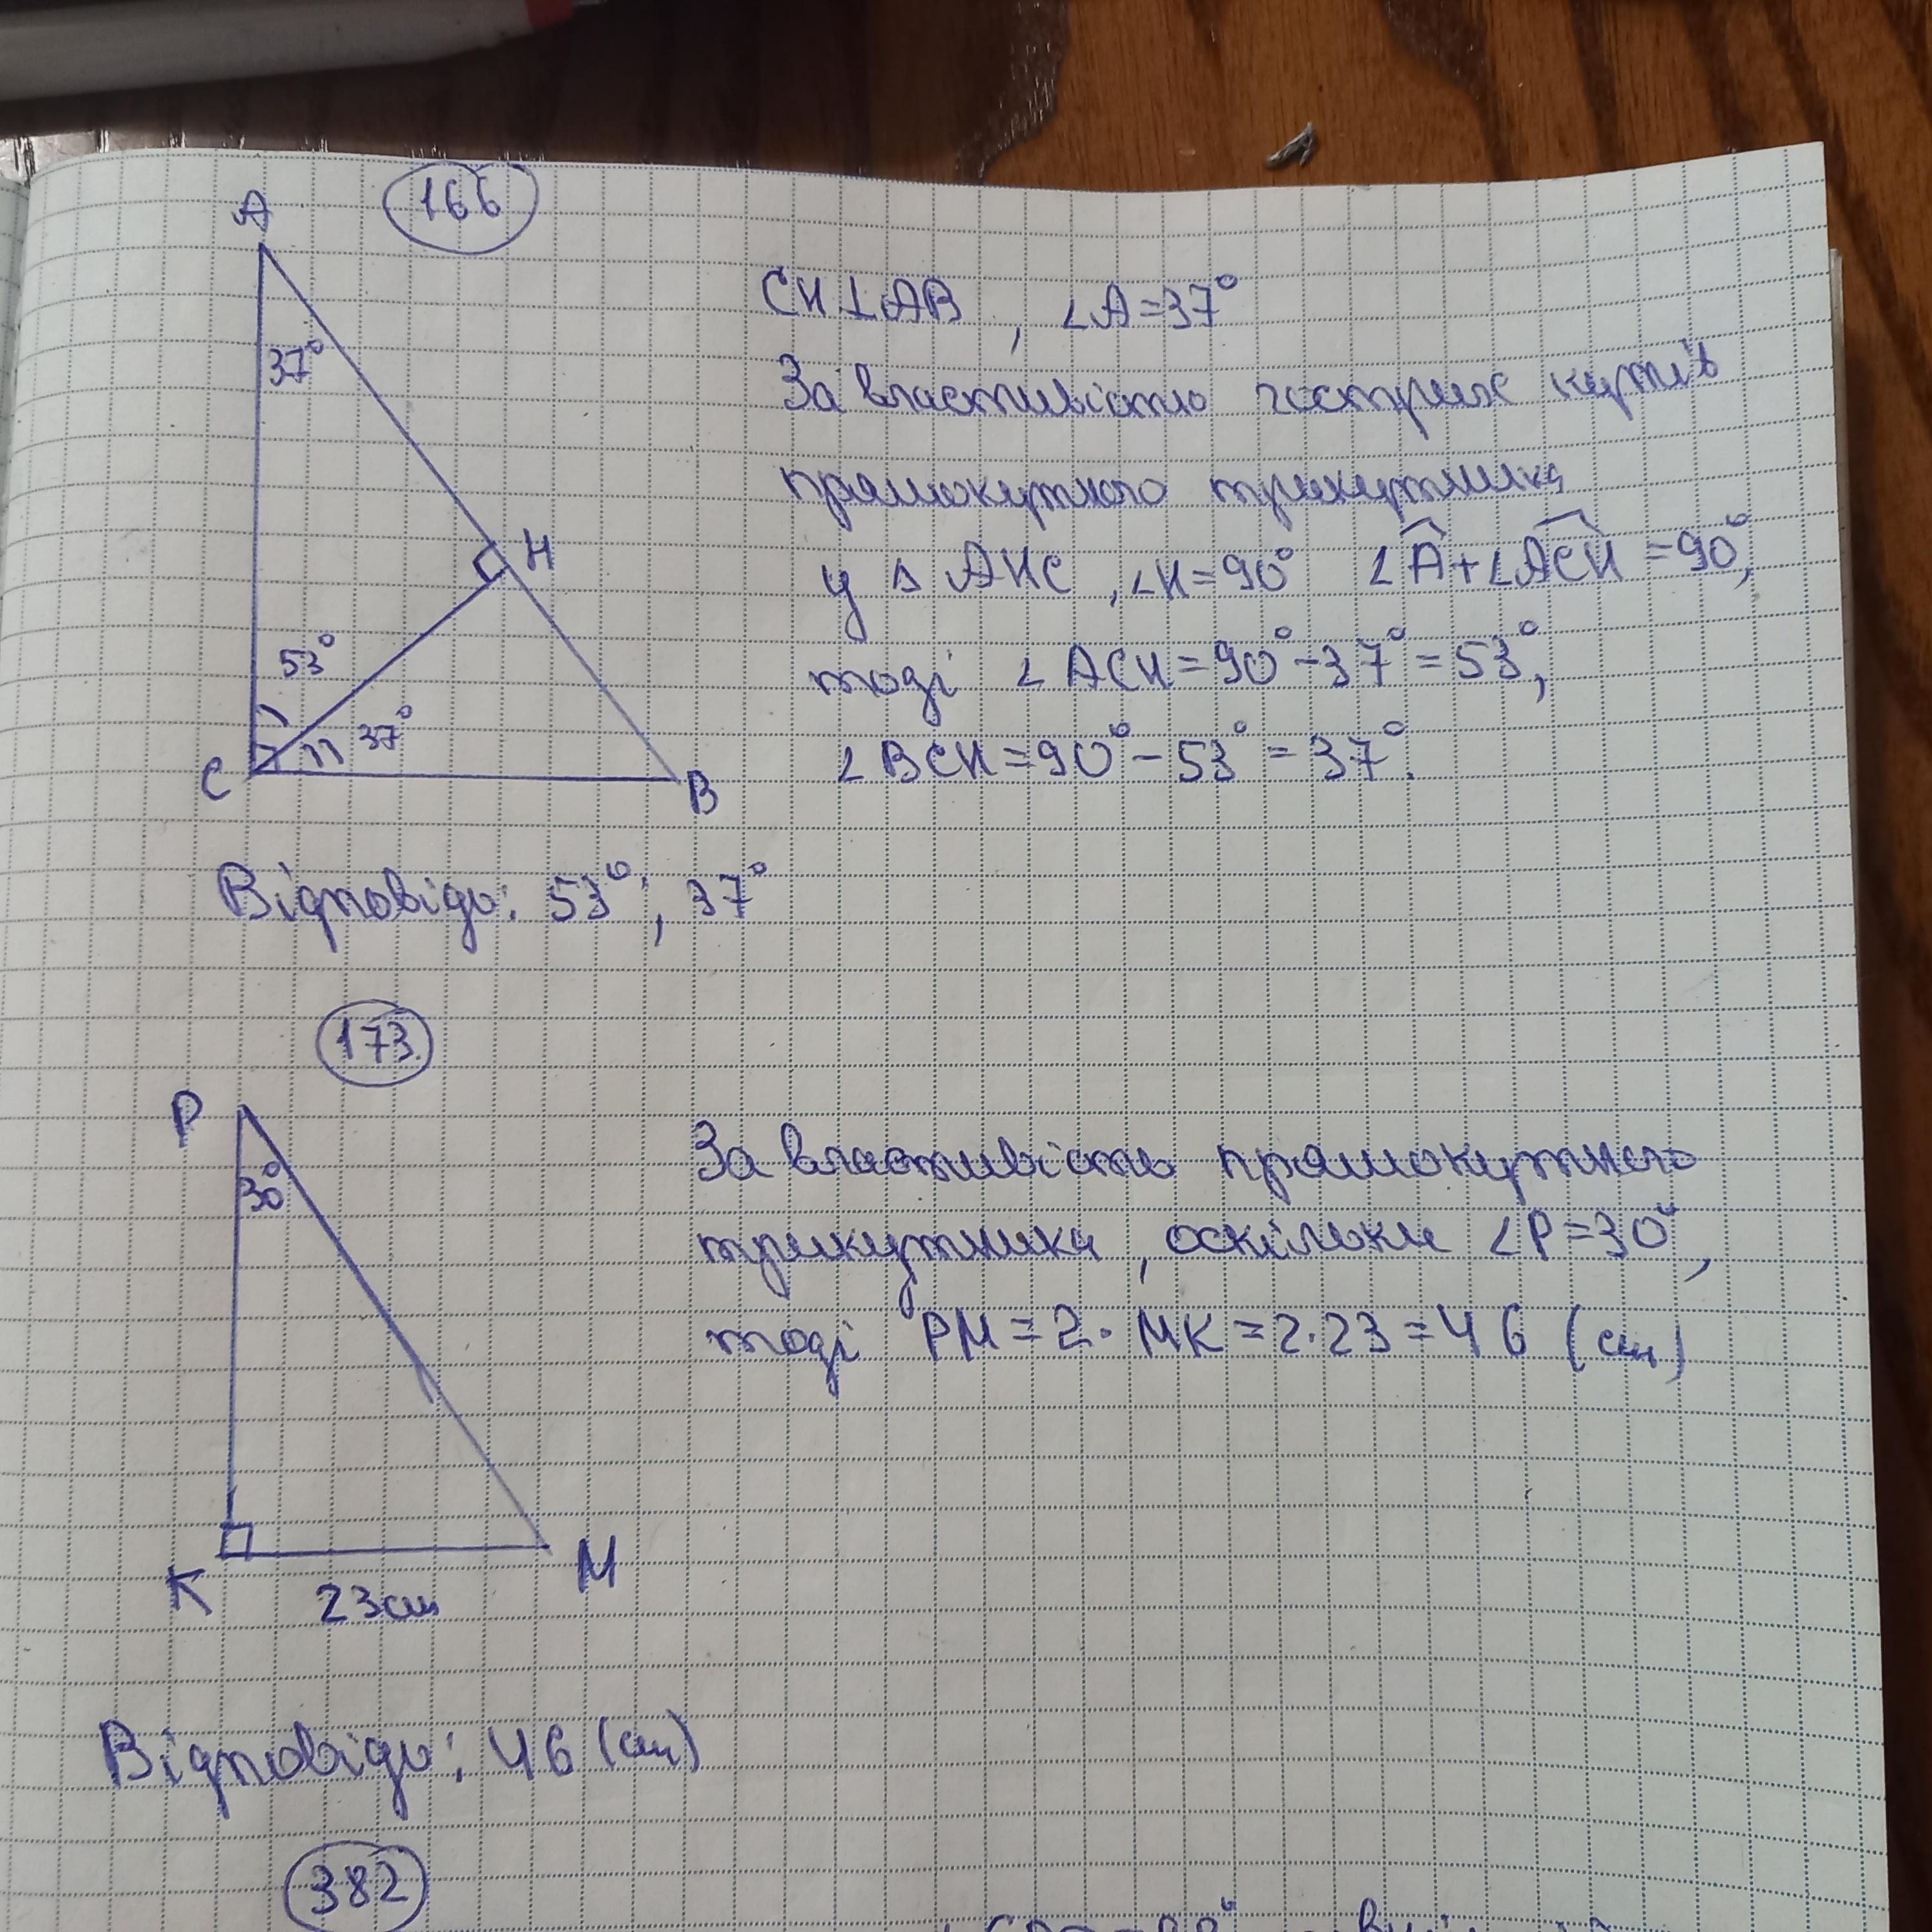 166
A
37°
H
53°
37°
C
B
CH⊥AB, ∠A=37°
За властивістю гострих кутів
прямокутного трикутника
у △ AHC, ∠H=90° ∠A+∠ACH=90°,
тоді ∠ACH=90°-37°=53°,
∠BCH=90°-53°=37°.
Відповідь: 53°; 37°
173.
P
30°
K
M
23см
За властивість прямокутного
трикутника, оскільки ∠P=30°,
тоді PM=2·MK=2·23=46 (см)
Відповідь: 46 (см)
382